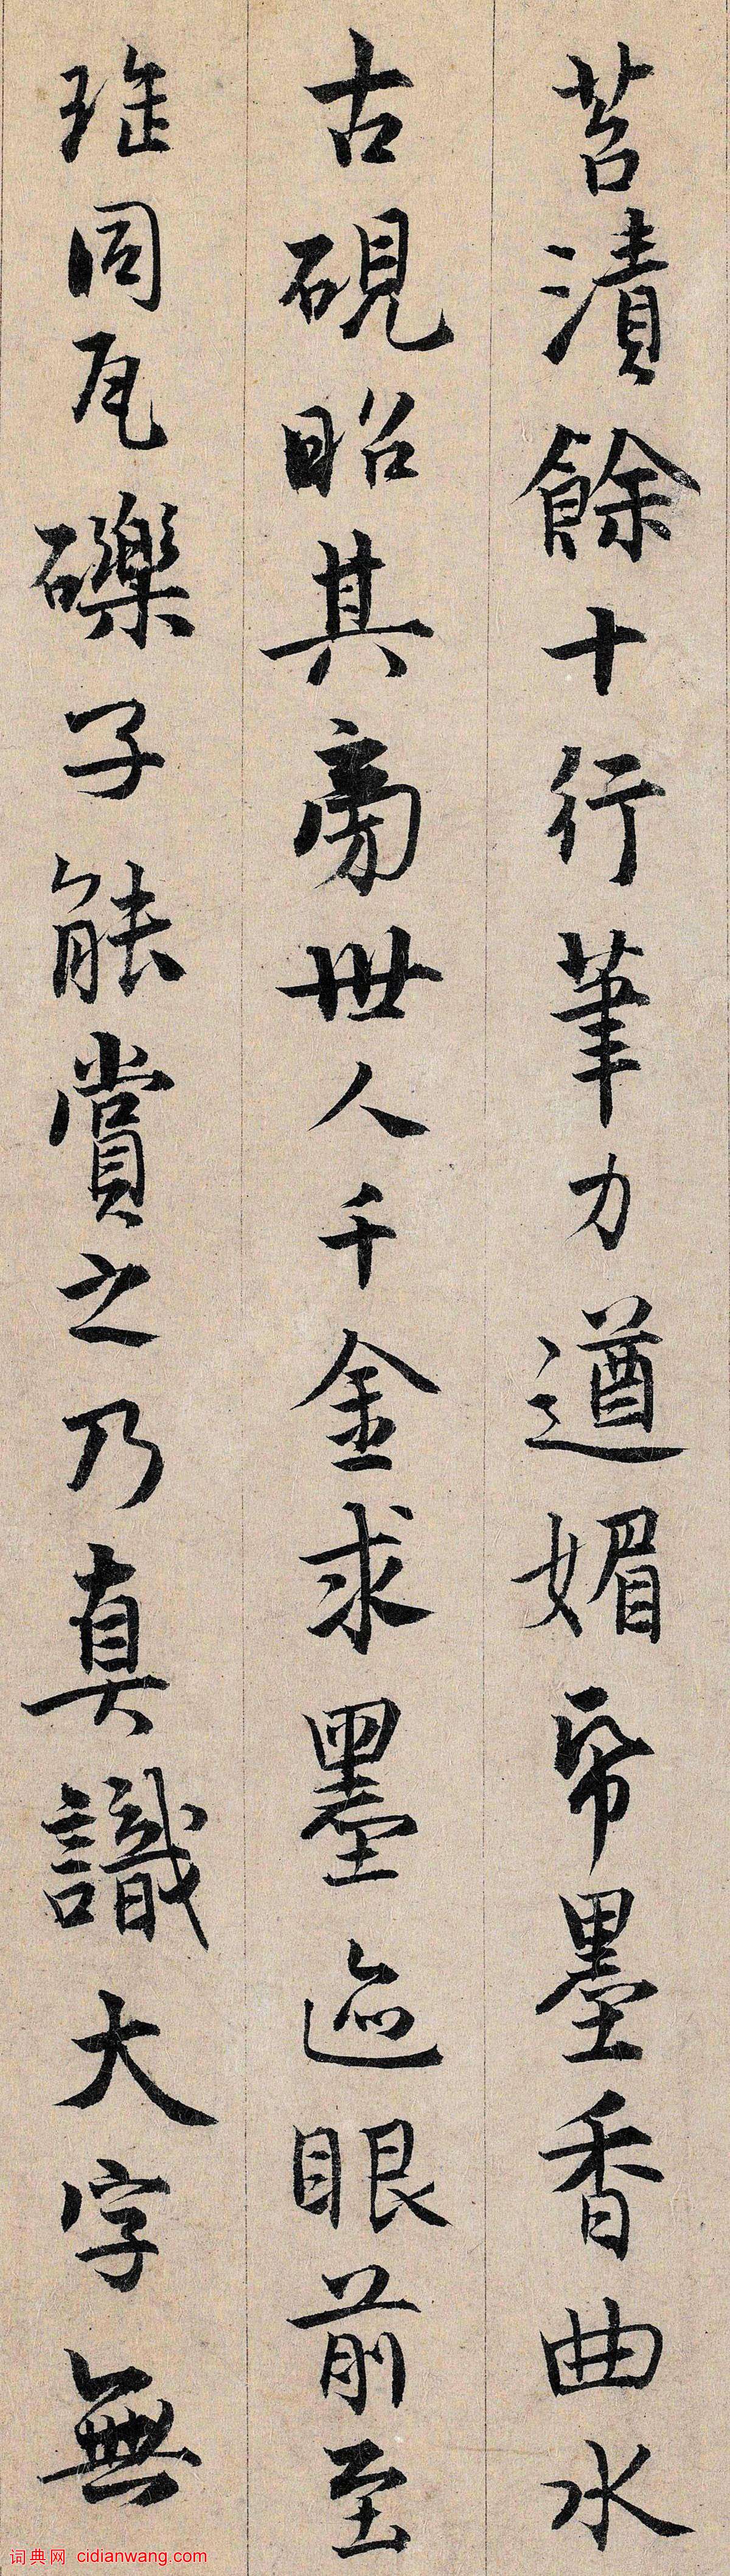 苔漬餘十行筆力遒媚帋墨香曲水
古硯昭其旁世人千金求墨迹眼前至
珤同瓦礫子能賞之乃真識大字無
词典网 cidianwang.com